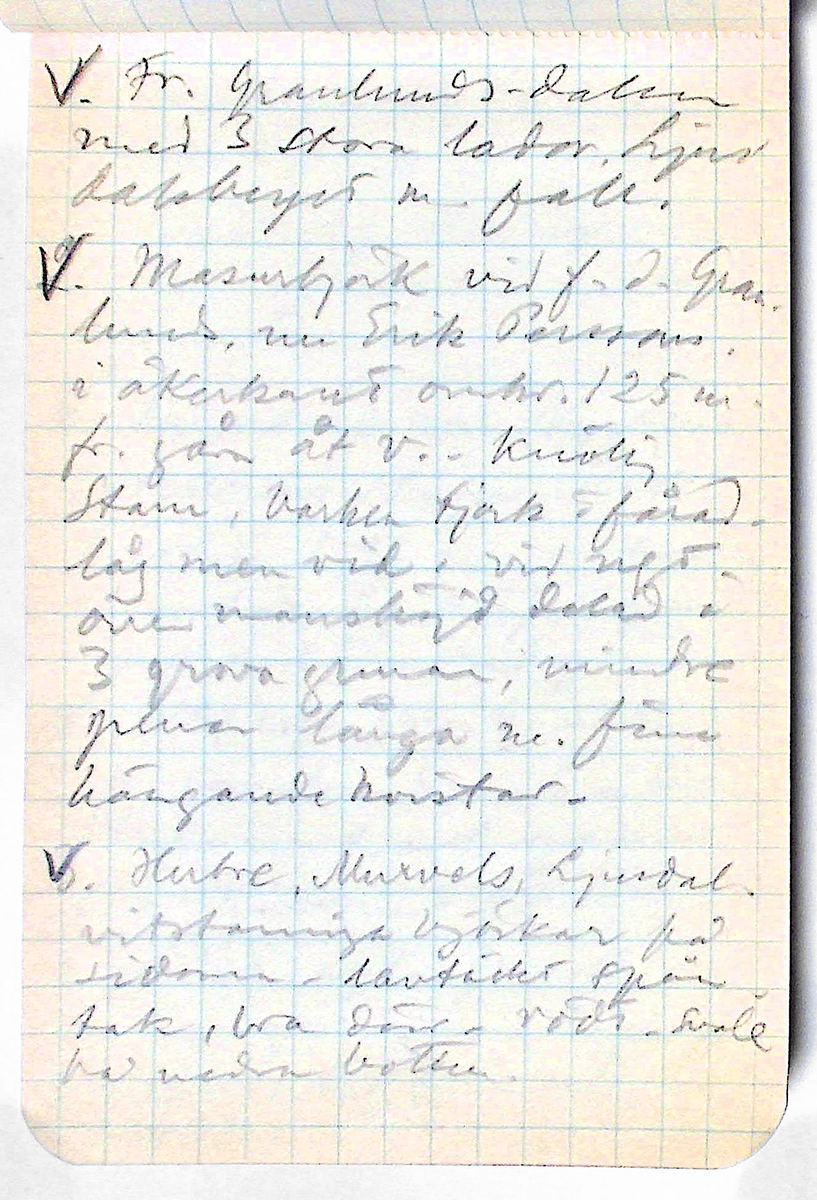 1. Fr. Granlunds-dalen
med 3 stora lador. Ljus
dalsberget m. fall.
2. Masurbjörk vid f. d. Gran-
lunds, nu Erik Perssons,
i åkerkant omkr. 125 m.
fr. gårn åt V. - Knölig
stam, barken tjock o fårad -
låg men vid, vid ngt
över manshöjd delad i
3 grova grenar, mindre
grenar långa m. fina
hängande kvistar -
3. Herbre, Murvels, Ljusdal.
vitstammiga björkar på
sidorna - lavtäckt spån
tak, bra dörr - röd - svale
på nedra botten.